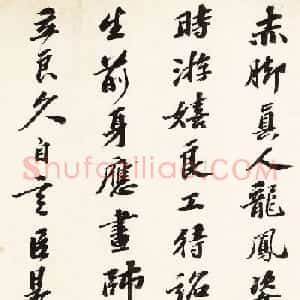 赤脚真人龍鳳姿
時游嬉良工待詔
生前身應畫師
良久自言臣